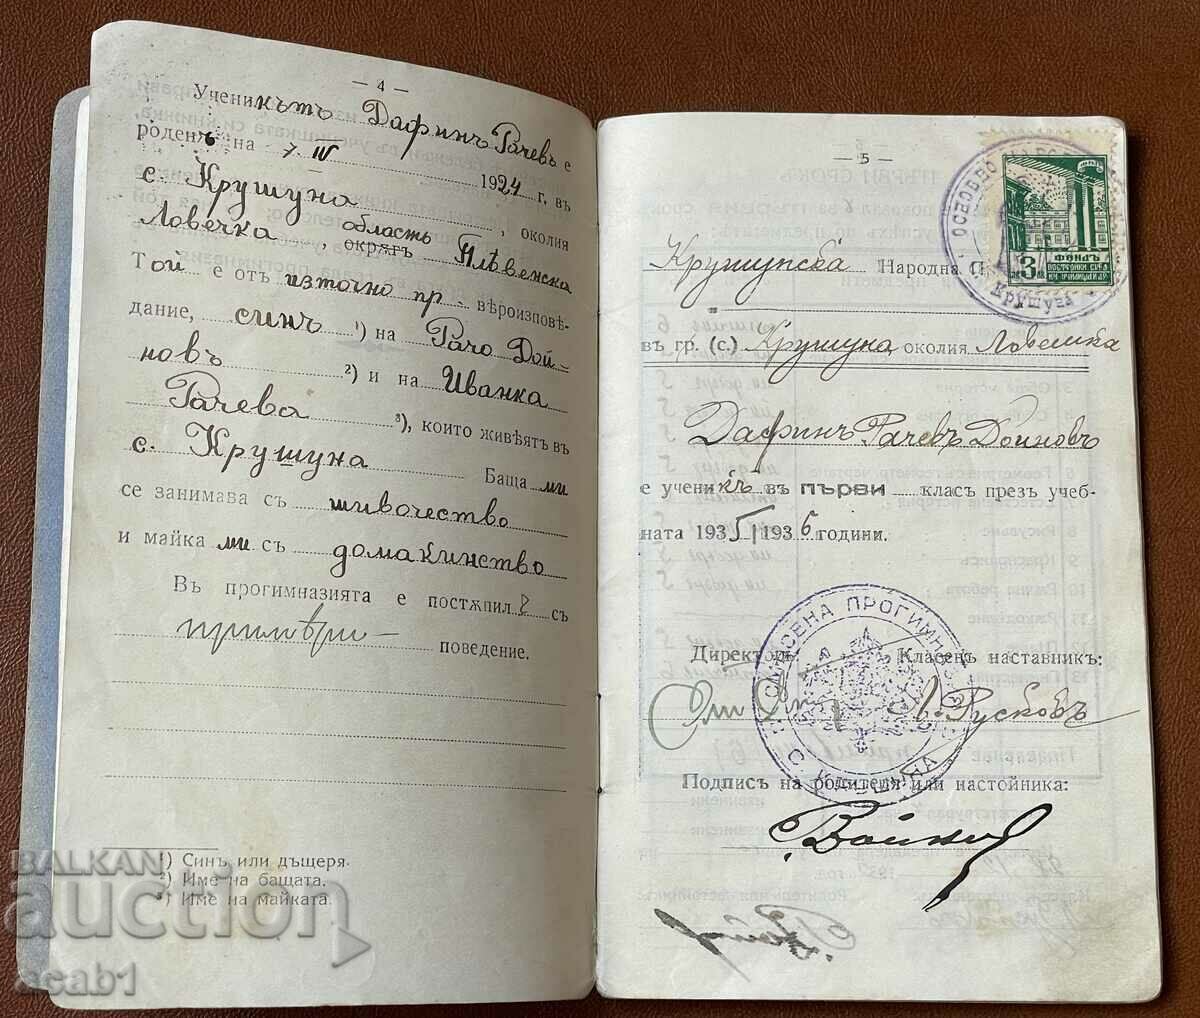 — 4 —
Ученикътъ Дафинъ Рачевъ е
роденъ на 7 IV 1924 г, въ
с. Крушуна, околия
Ловечка, окрягъ область Плѣвенска
Той е отъ източно пр- вѣроизповѣ-
дание, синъ ¹) на Рачо Дой-
новъ ²) и на Иванка
Рачева ³), които живѣятъ въ
с. Крушуна Баща ми
се занимава съ шивочество
и майка ми съ домакинство
Въ прогимназията е постѫпил съ
примѣрно поведение.
¹) Синъ или дъщеря.
²) Име на бащата.
³) Име на майката.
— 5 —
Крушунска Народна
въ гр. (с.) Крушуна, околия Ловешка
Дафинъ Рачевъ Дойновъ
е ученикъ въ ПЪРВИ класъ презъ учеб-
ната 1935/1936 години.
Директоръ: Класенъ наставникъ:
Русковъ
Подпись на родителя или настойника:
ОСНОВНО НАРОДНО
Крушуна
3
ФОНДЪ
ПРОГИМНАЗИЯ
С. КРУШУНА
BALKAN
auction
acab1